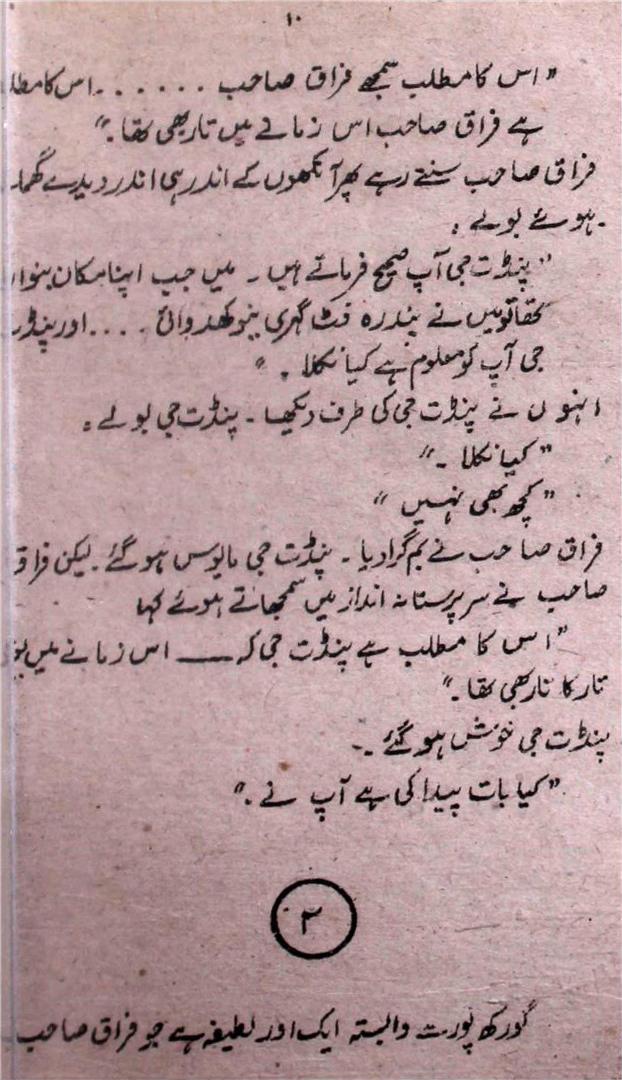 ۱۰
"اس کا مطلب سمجھے فراق صاحب ....... اس کا مطلـ
ہے فراق صاحب اس زمانے میں تار بھی تھا۔"
فراق صاحب سنتے رہے پھر آنکھوں کے اندر ہی اندر دیدے گھما
ہوئے بولے :
"پنڈت جی آپ صحیح فرماتے ہیں ۔ میں جب اپنا مکان بنوا
تھا تو میں نے پندرہ فٹ گہری نیو کھدوائی .... اور پنڈ
جی آپ کو معلوم ہے کیا نکلا ۔"
انہوں نے پنڈت جی کی طرف دیکھا ۔ پنڈت جی بولے :
"کیا نکلا ۔"
"کچھ بھی نہیں"
فراق صاحب نے بم گرا دیا ۔ پنڈت جی مایوس ہو گئے ۔ لیکن فراق
صاحب نے سرپرستانہ انداز میں سمجھاتے ہوئے کہا
"اس کا مطلب ہے پنڈت جی کہ ـــــ اس زمانے میں
تار کا تار بھی تھا ۔"
پنڈت جی خوش ہو گئے ۔
"کیا بات پیدا کی ہے آپ نے ۔"
۲
گورکھ پور سے وابستہ ایک اور لطیفہ ہے جو فراق صاحب